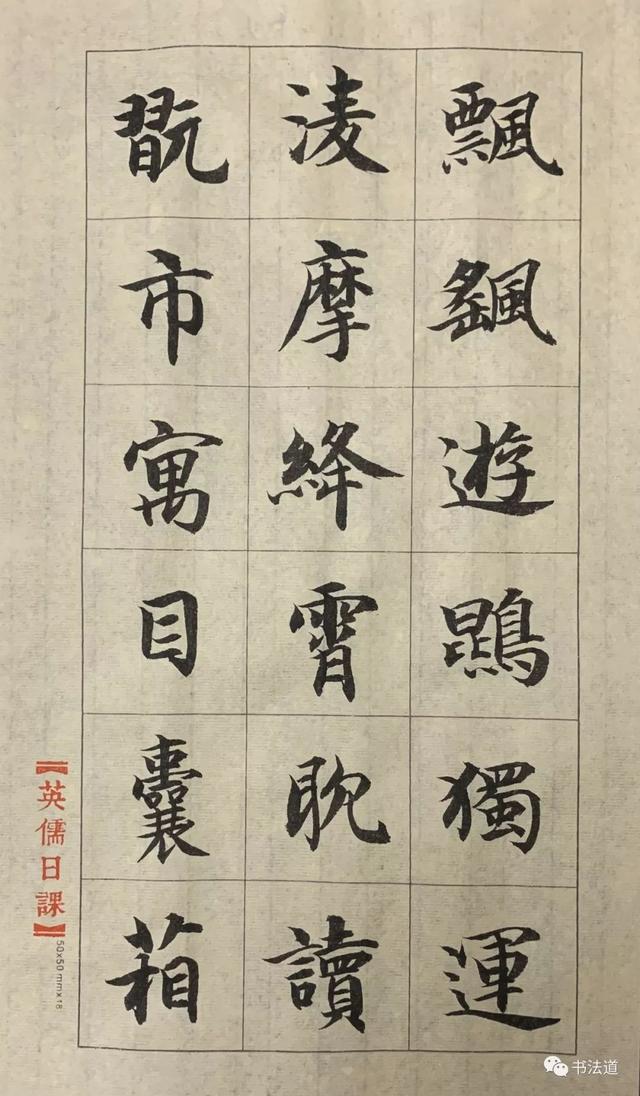 飄颻遊鵾獨運
淩摩絳霄耽讀
翫市寓目囊葙
【英儒日課】
50x50mmx18
书法道